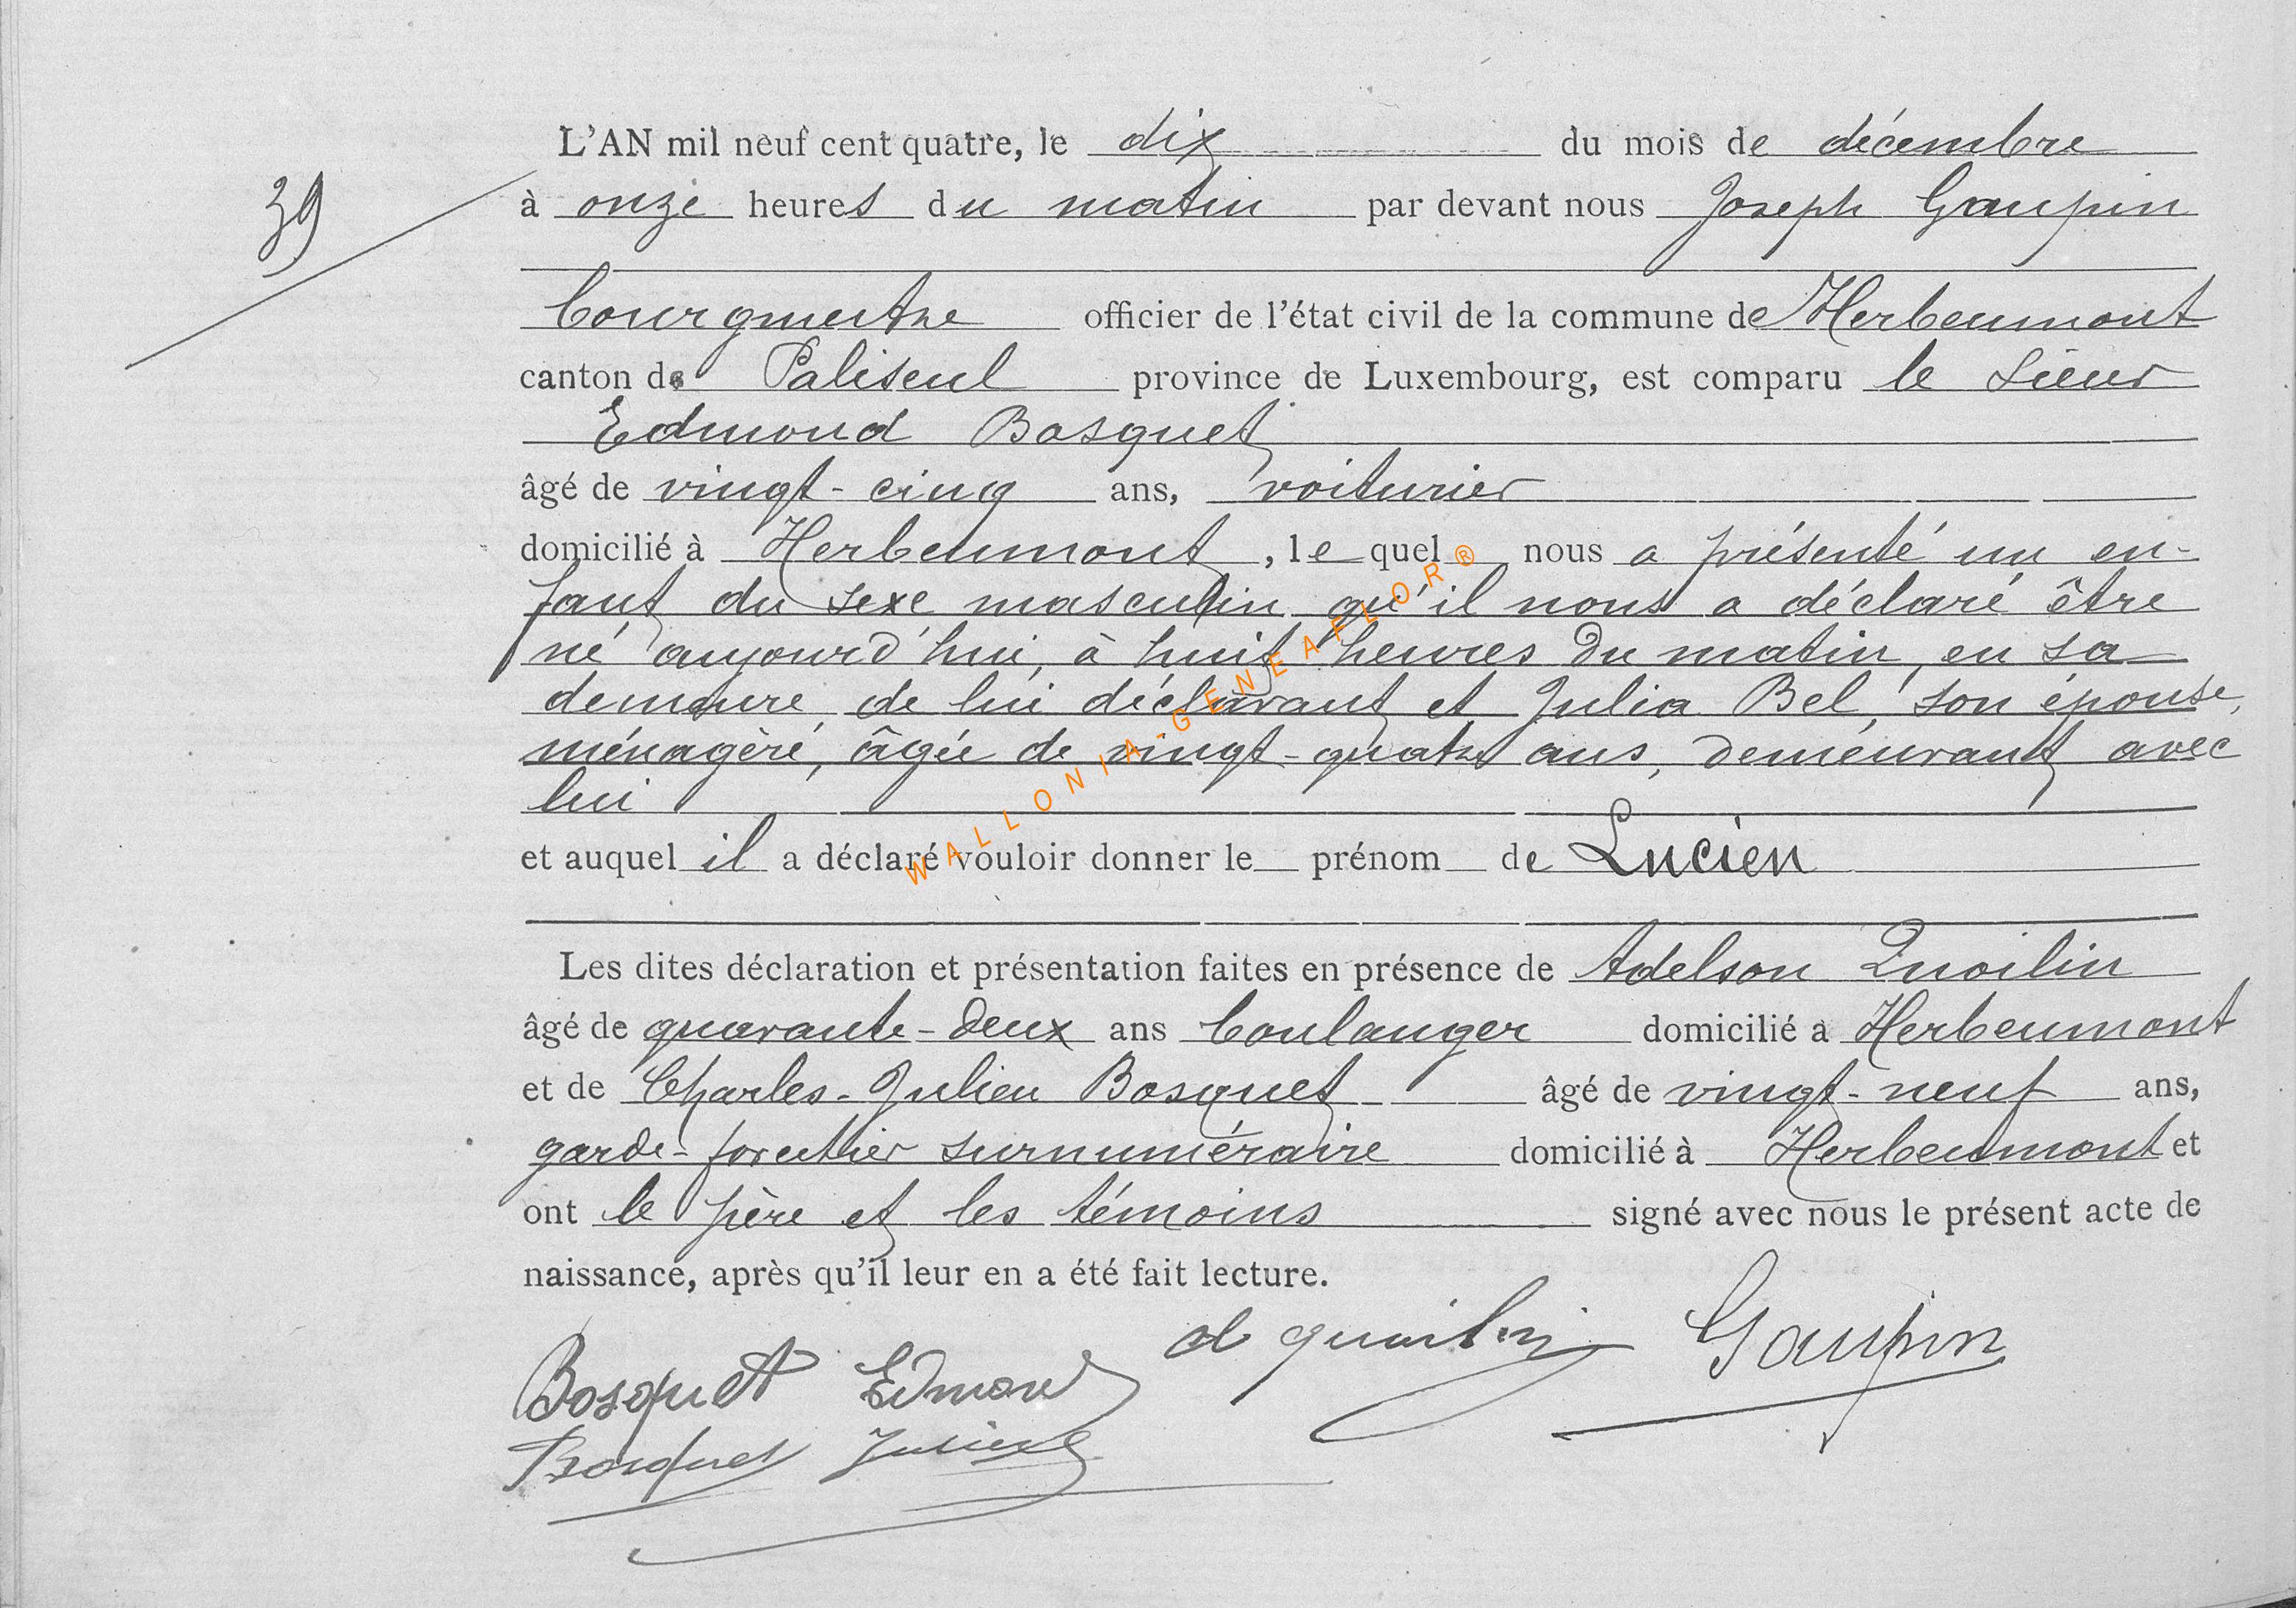 39
L'AN mil neuf cent quatre, le dix du mois de décembre
à onze heures du matin par devant nous Joseph Gaupin
bourgmestre officier de l'état civil de la commune de Herbeumont
canton de Paliseul province de Luxembourg, est comparu le sieur
Edmond Bosquet
âgé de vingt-cinq ans, voiturier
domicilié à Herbeumont, lequel nous a présenté un en-
fant du sexe masculin qu'il nous a déclaré être
né aujourd'hui, à huit heures du matin, en sa
demeure, de lui déclarant et Julia Bel, son épouse,
ménagère, âgée de vingt-quatre ans, demeurant avec
lui
et auquel il a déclaré vouloir donner le prénom de Lucien
Les dites déclaration et présentation faites en présence de Adelson Quoilin
âgé de quarante-deux ans boulanger domicilié a Herbeumont
et de Charles-Julien Bosquet âgé de vingt-neuf ans,
garde-forestier surnuméraire domicilié à Herbeumont et
ont le père et les témoins signé avec nous le présent acte de
naissance, après qu'il leur en a été fait lecture.
Bosquet Edmond a quoilin Gaupin
Bosquet Julien
WALLONIA-GENEAFLOR®